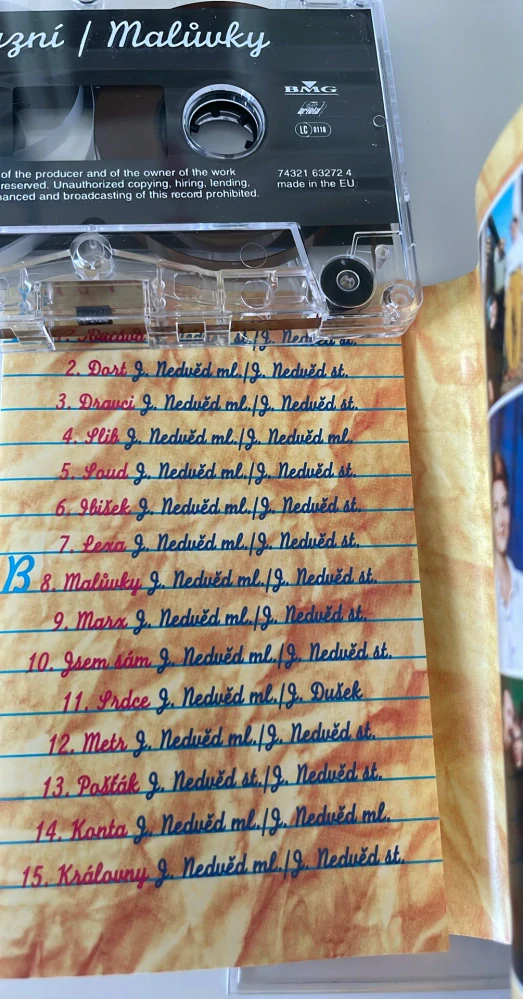 zní / Malůvky
BMG
ariola
LC 0116
of the producer and of the owner of the work
reserved. Unauthorized copying, hiring, lending,
anced and broadcasting of this record prohibited.
74321 63272 4
made in the EU
2. Dort J. Nedvěd ml./J. Nedvěd st.
3. Dravci J. Nedvěd ml./J. Nedvěd st.
4. Slib J. Nedvěd ml./J. Nedvěd ml.
5. Soud J. Nedvěd ml./J. Nedvěd st.
6. Ibišek J. Nedvěd ml./J. Nedvěd st.
7. Lexa J. Nedvěd ml./J. Nedvěd st.
B 8. Malůvky J. Nedvěd ml./J. Nedvěd st.
9. Marx J. Nedvěd ml./J. Nedvěd st.
10. Jsem sám J. Nedvěd ml./J. Nedvěd st.
11. Srdce J. Nedvěd ml./J. Dušek
12. Metr J. Nedvěd ml./J. Nedvěd st.
13. Pošťák J. Nedvěd st./J. Nedvěd st.
14. Konta J. Nedvěd ml./J. Nedvěd ml.
15. Královny J. Nedvěd ml./J. Nedvěd st.